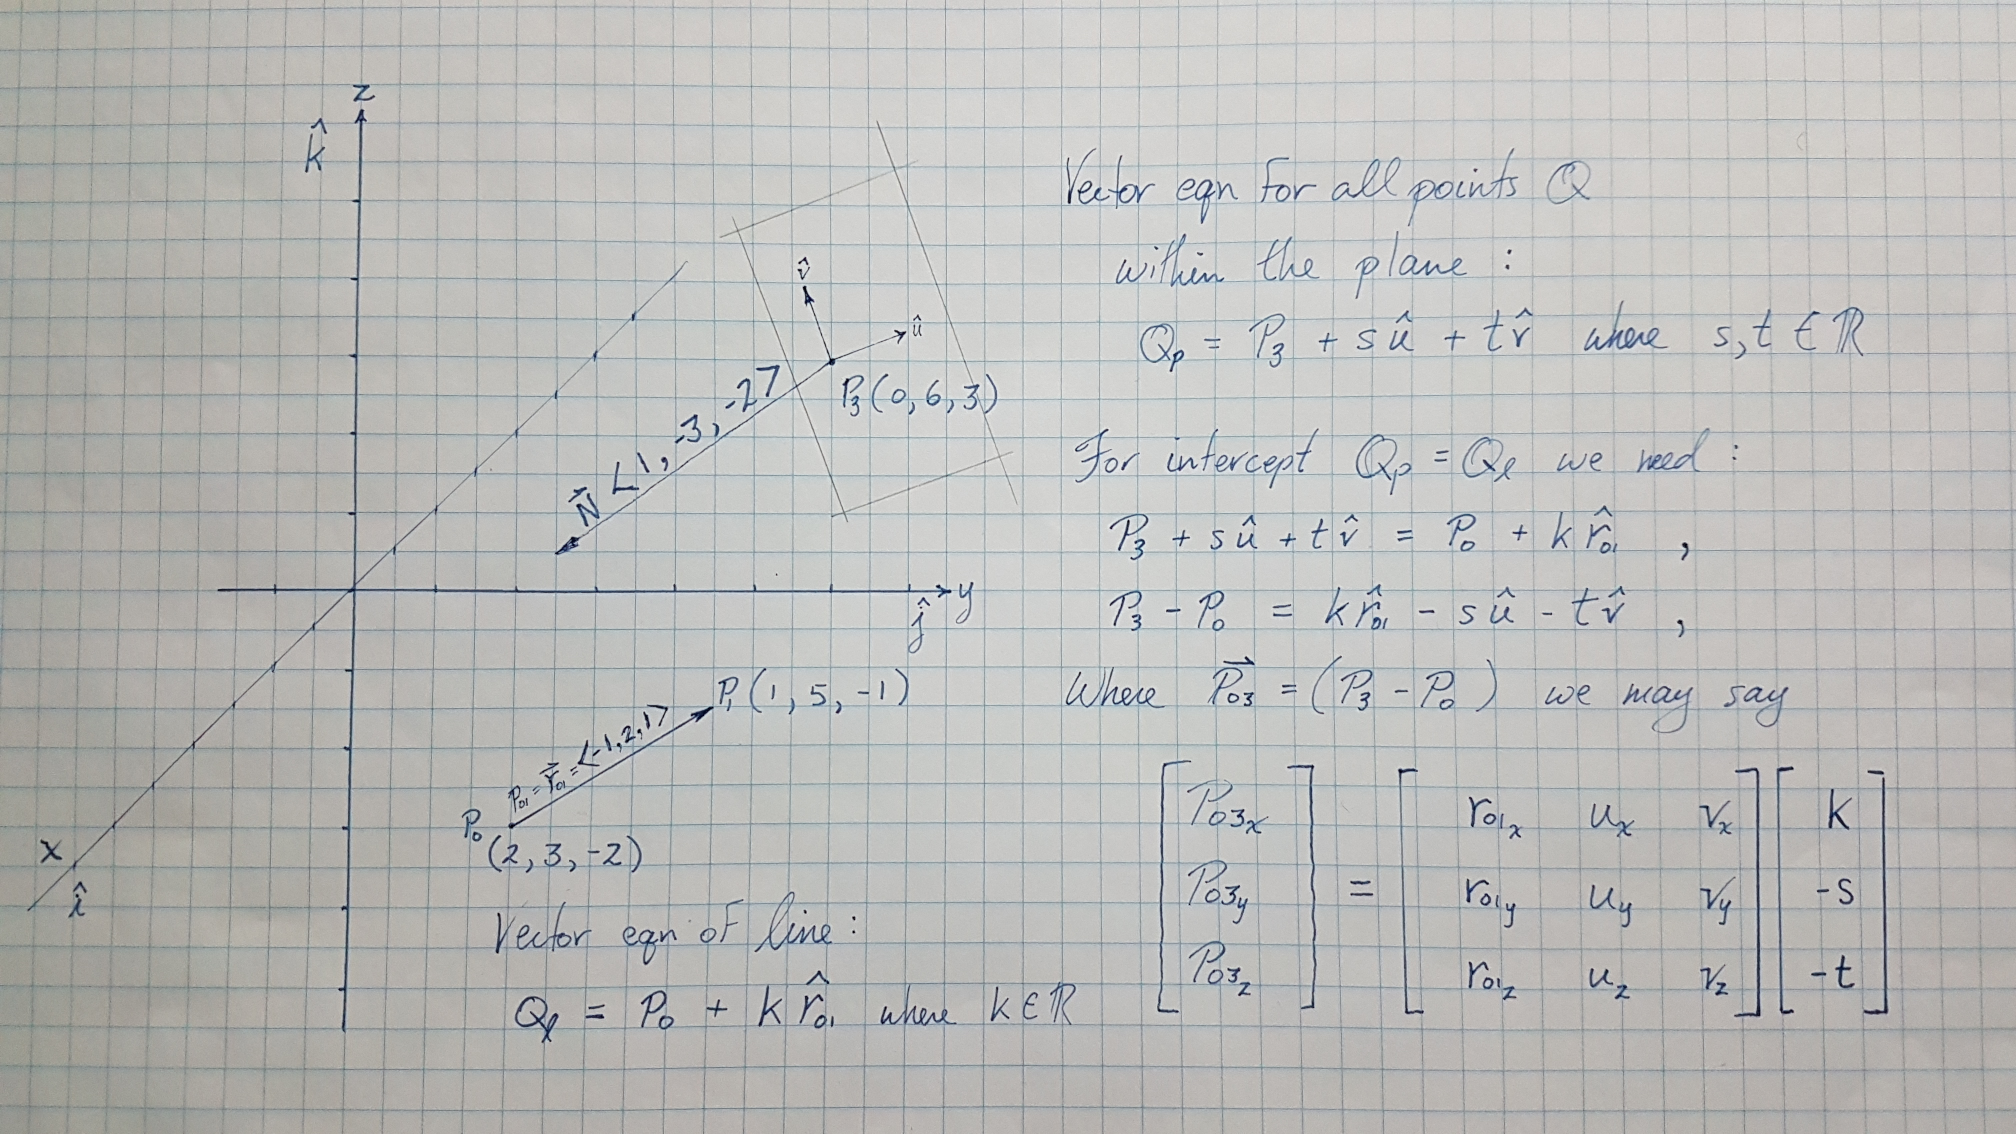 z
k̂
v̂
û
P₃(0, 6, 3)
N⃗ <1, -3, -2>
y
ĵ
P₁(1, 5, -1)
P₀₁ = r⃗₀₁ = <-1, 2, 1>
P₀
(2, 3, -2)
x
î
Vector eqn of line:
Qℓ = P₀ + k r̂₀₁ where k ∈ ℝ
Vector eqn for all points Q
within the plane :
Qₚ = P₃ + s û + t v̂ where s, t ∈ ℝ
For intercept Qₚ = Qℓ we need :
P₃ + s û + t v̂ = P₀ + k r̂₀₁ ,
P₃ - P₀ = k r̂₀₁ - s û - t v̂ ,
Where P⃗₀₃ = (P₃ - P₀) we may say
[P₀₃ₓ] = [r₀₁ₓ uₓ vₓ] [k]
[P₀₃y] = [r₀₁y uy vy] [-s]
[P₀₃z] = [r₀₁z uz vz] [-t]